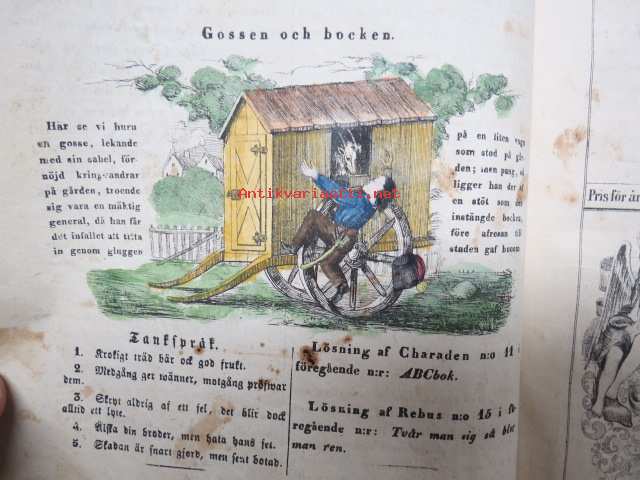 Gossen och bocken.
Här se vi huru
en gosse, lekande
med sin sabel, för-
nöjd kring vandrar
på gården, troende
sig vara en mäktig
general, då han får
det infallet att titta
in genom gluggen
på en liten vagn
som stod på går-
den; men pang, så
ligger han der af
en stöt som den
instängde bocken
före afresan till
staden gaf honom
Antikvariaatti.net
Tankspråk.
1. Krokigt träd bär ock god frukt.
2. Medgång ger wänner, motgång pröfwar
dem.
3. Skryt aldrig af ett fel, det blir dock
alltid ett lyte.
4. Älska din broder, men hata hans fel.
5. Skadan är snart gjord, men sent botad.
Lösning af Charaden n:o 11 i
föregående n:r: ABCbok.
Lösning af Rebus n:o 15 i fö-
regående n:r: Tvår man sig så blir
man ren.
Pris för år